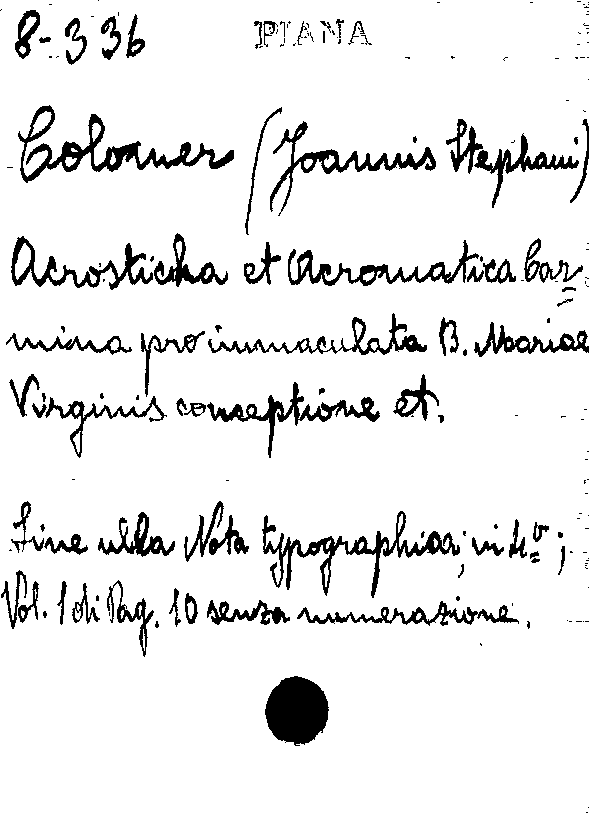 8-336 PIANA
Colomer (Joannis Stephani)
Acrosticha et Acromatica Car=
mina pro immaculata B. Mariae
Virginis conceptione et.
Sine ulla Nota typographica; in 4.º;
Vol. 1 di Pag. 10 senza numerazione.